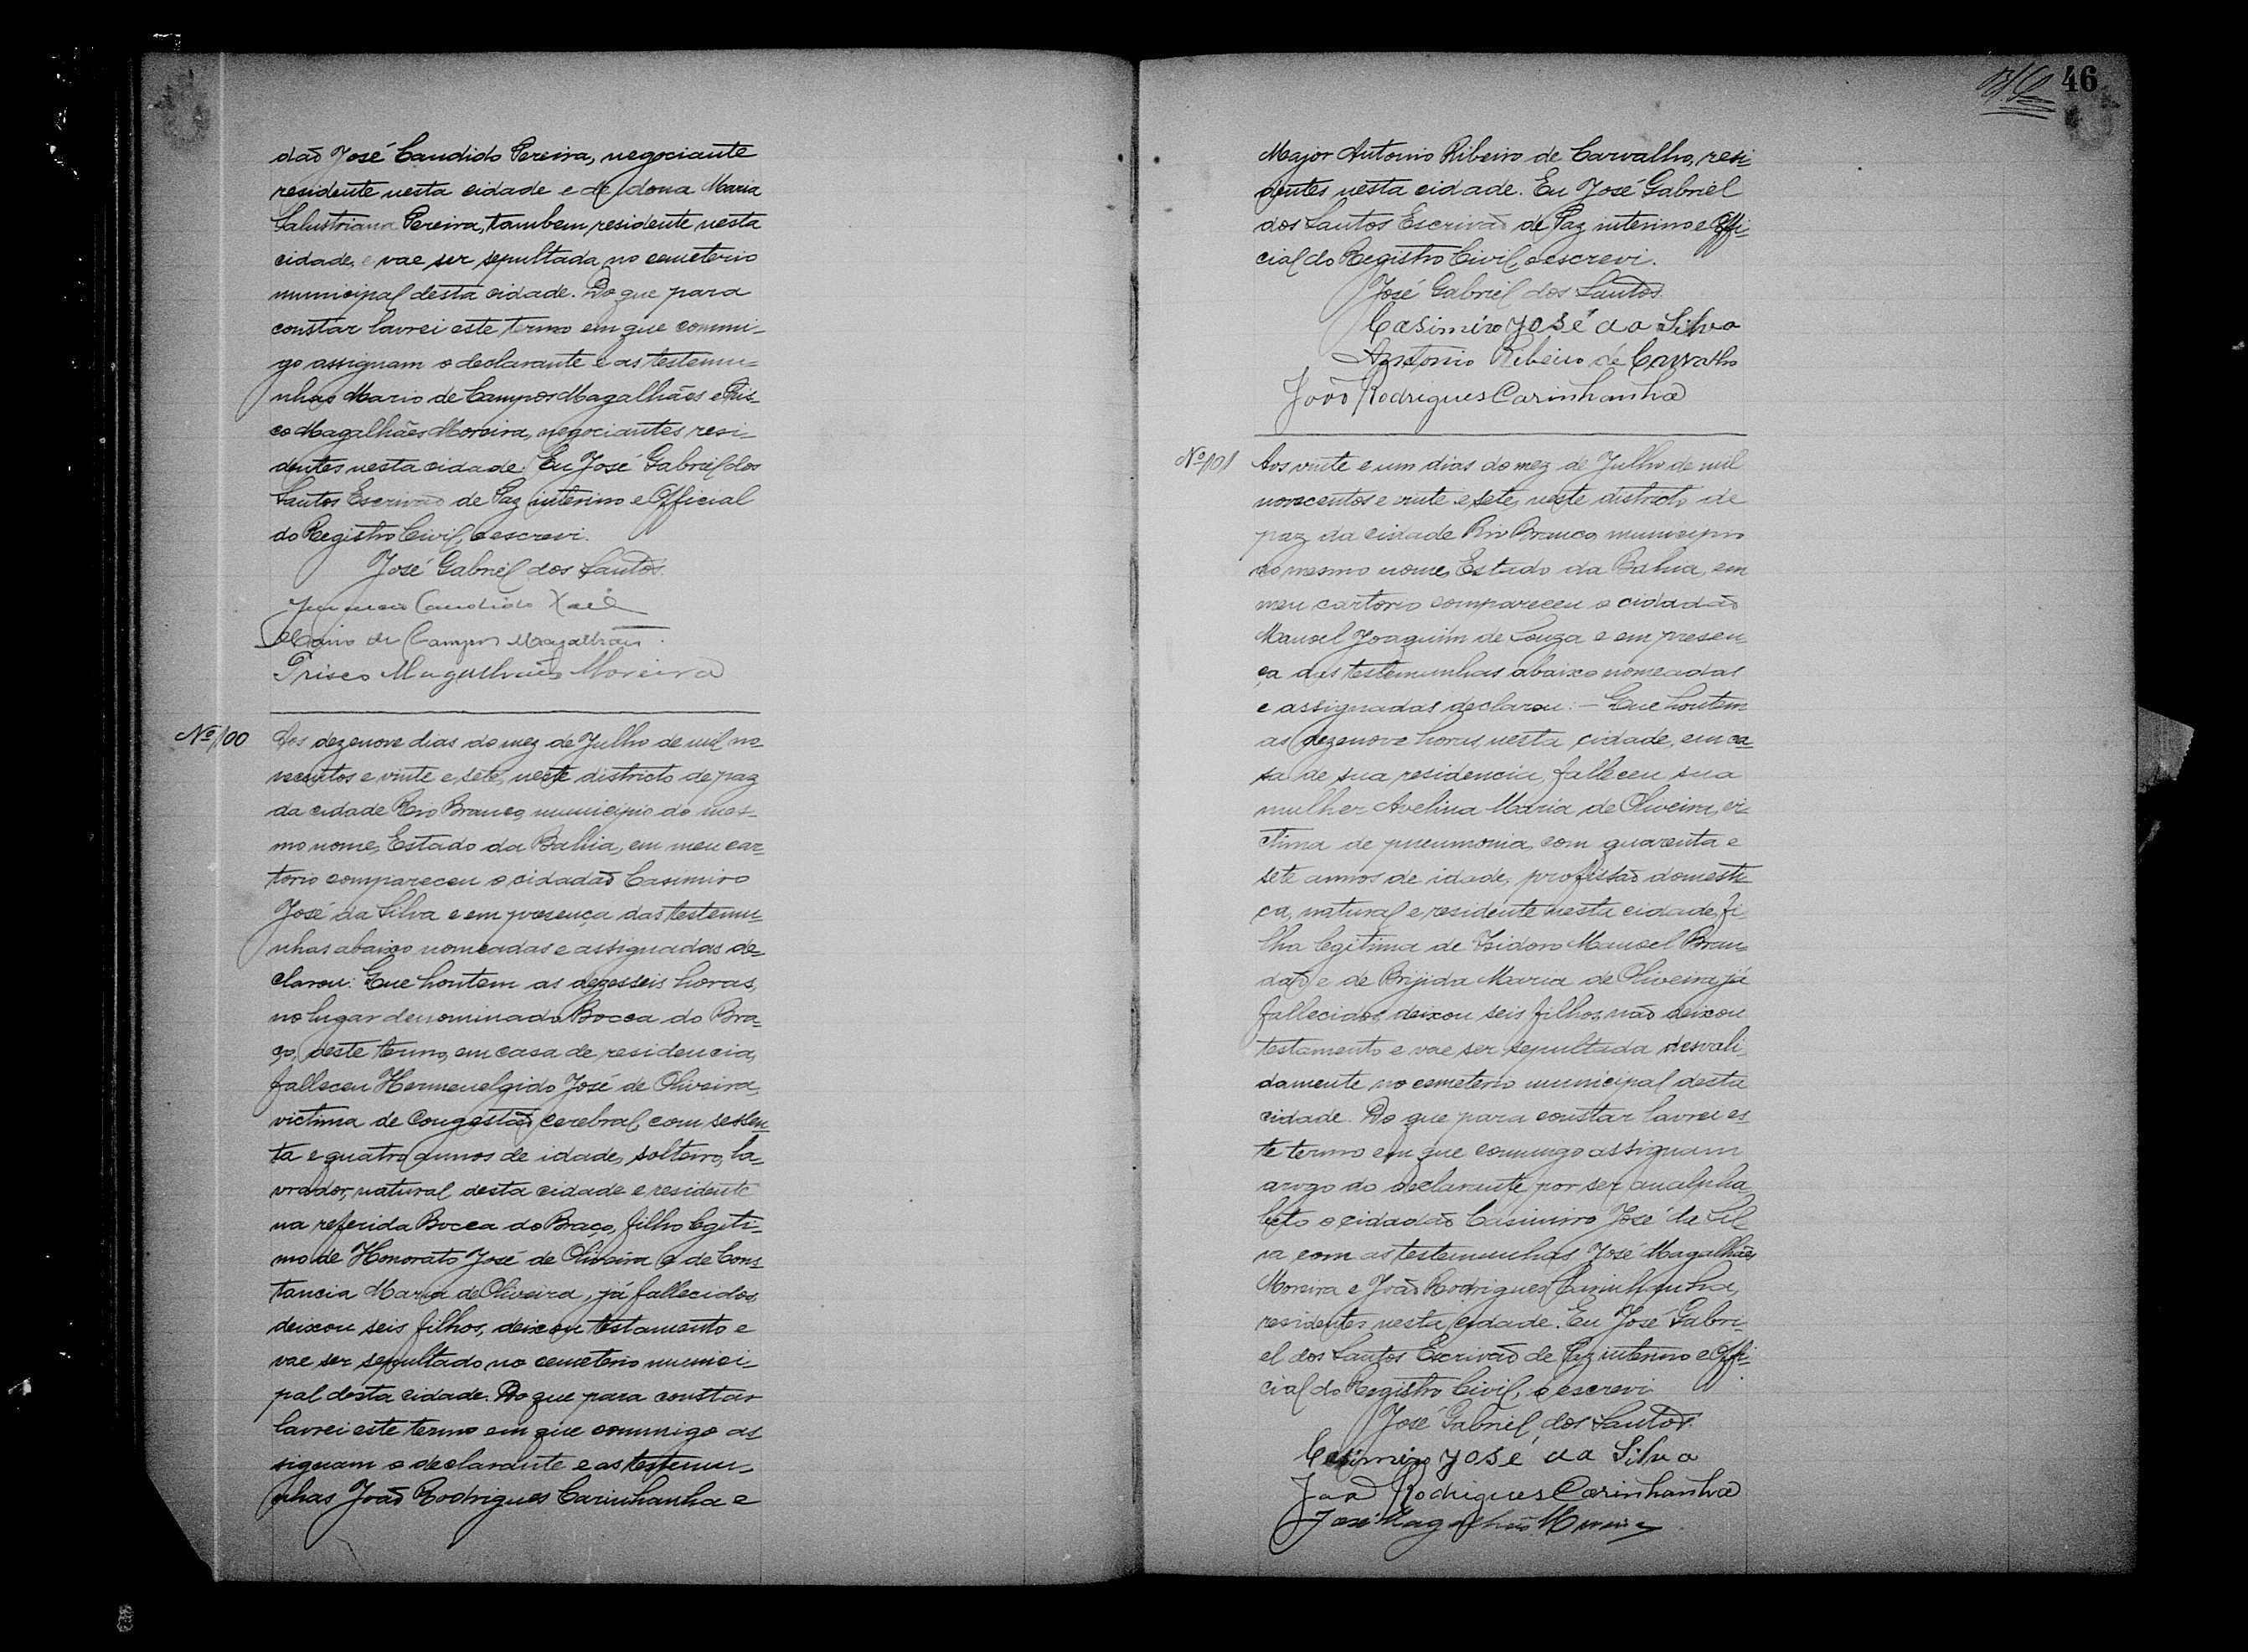 dão José Candido Pereira, negociante
residente nesta cidade e de dona Maria
Salustriana Pereira, tambem residente nesta
cidade, e vae ser sepultada no cemeterio
municipal desta cidade. Do que para
constar lavrei este termo em que commi-
go assignam o declarante e as testemu-
nhas Mario de Campos Magalhães e Pris-
co Magalhães Moreira, negociantes resi-
dentes nesta cidade. Eu José Gabriel dos
Santos Escrivão de Paz interino e Official
do Registro Civil, o escrevi.
José Gabriel dos Santos.
Candido
Mario de Campos Magalhães.
Prisco Magalhães Moreira
Nº 100
Aos dezenove dias do mez de Julho de mil no-
vecentos e vinte e sete, neste districto de paz
da cidade Rio Branco, municipio do mes-
mo nome, Estado da Bahia, em meu car-
torio compareceu o cidadão Casimiro
José da Silva e em presença das testemu-
nhas abaixo nomeadas e assignadas de-
clarou: Que hontem as dezesseis horas,
no lugar denominado Bocca do Bra-
ço, deste termo, em casa de residencia,
falleceu Hermenelgido José de Oliveira,
victima de Congestão cerebral, com sessen-
ta e quatro annos de idade, solteiro, la-
vrador, natural desta cidade e residente
na referida Bocca do Braço, filho legiti-
mo de Honorato José de Oliveira e de Cons-
tancia Maria de Oliveira, já fallecidos,
deixou seis filhos, deixou testamento e
vae ser sepultado no cemeterio munici-
pal desta cidade. Do que para constar
lavrei este termo em que commigo as-
signam o declarante e as testemu-
nhas João Rodrigues Carinhanha e
46
Major Antonio Ribeiro de Carvalho, resi-
dentes nesta cidade. Eu José Gabriel
dos Santos Escrivão de Paz interino e Offi-
cial do Registro Civil, o escrevi.
José Gabriel dos Santos.
Casimiro José da Silva
Antonio Ribeiro de Carvalho
João Rodrigues Carinhanha
Nº 101
Aos vinte e um dias do mez de Julho de mil
novecentos e vinte e sete, neste districto de
paz da cidade Rio Branco, municipio
do mesmo nome, Estado da Bahia, em
meu cartorio compareceu o cidadão
Manoel Joaquim de Souza e em presen-
ça das testemunhas abaixo nomeadas
e assignadas declarou: - Que hontem
as dezenove horas, nesta cidade, em ca-
sa de sua residencia, falleceu sua
mulher Avelina Maria de Oliveira, vi-
ctima de pneumonia, com quarenta e
sete annos de idade, profissão domesti-
ca, natural e residente nesta cidade, fi-
lha legitima de Izidoro Manoel Bran-
dão e de Brijida Maria de Oliveira, já
fallecidos, deixou seis filhos, não deixou
testamento e vae ser sepultada desvali-
damente no cemeterio municipal desta
cidade. Do que para constar lavrei es-
te termo em que commigo assignam
arogo do declarante por ser analpha-
beto o cidadão Casimiro José da Sil-
va com as testemunhas José Magalhães
Moreira e João Rodrigues Carinhanha,
residentes nesta cidade. Eu José Gabri-
el dos Santos Escrivão de Paz interino e Offi-
cial do Registro Civil, o escrevi
José Gabriel dos Santos.
Casimiro José da Silva
João Rodrigues Carinhanha
José Magalhães Moreira